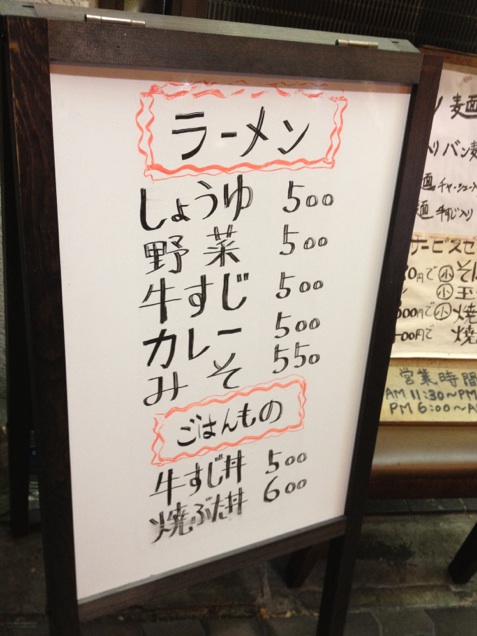 ラーメン
しょうゆ 500
野菜 500
牛すじ 500
カレー 500
みそ 550
ごはんもの
牛すじ丼 500
焼ぶた丼 600
麺
バン麺
チャーシュー入
牛すじ入り
サービスセ
円で 小 そば
小 玉
500円で 小 焼
00円で 焼
営業時間
AM 11:30~PM
PM 6:00~A